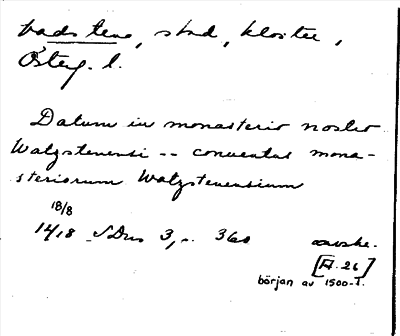 Vadstena, stad, kloster,
Österg. l.
Datum in monasterio nostro
Watzstenensi -- conventus mona-
steriorum Watzstenensium
18/8
1418 SDns 3, s. 360 avskr.
[A 26]
början av 1500-t.